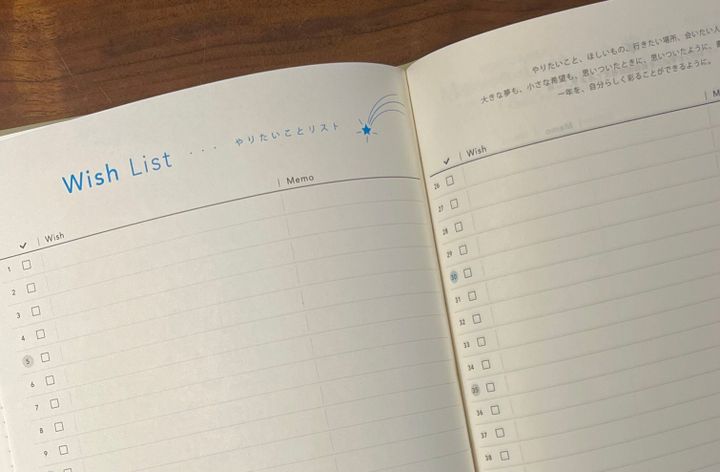 Wish List ・・・ やりたいことリスト
✓ | Wish | Memo
1
2
3
4
5
6
7
8
9
やりたいこと、ほしいもの、行きたい場所、会いたい人
大きな夢も、小さな希望も、思いついたときに、思いついたように、
一年を、自分らしく彩ることができるように。
✓ | Wish
26
27
28
29
30
31
32
33
34
35
36
37
38